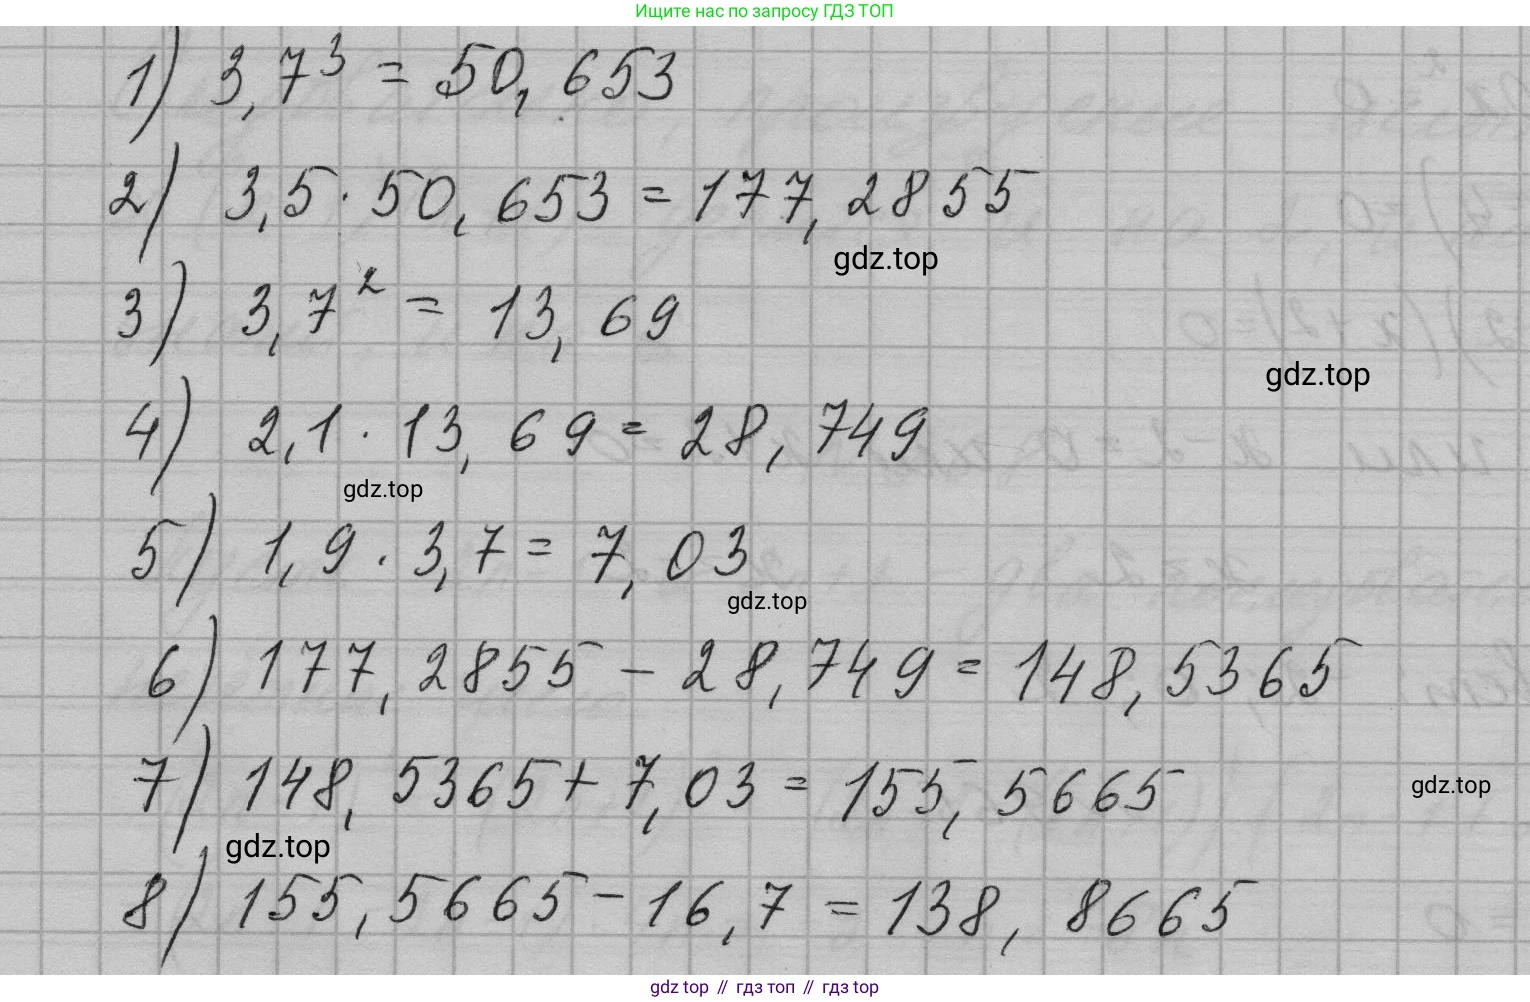 Ищите нас по запросу ГДЗ ТОП
1) 3,7³ = 50,653
2) 3,5 · 50,653 = 177,2855
gdz.top
3) 3,7² = 13,69
gdz.top
4) 2,1 · 13,69 = 28,749
gdz.top
5) 1,9 · 3,7 = 7,03
gdz.top
6) 177,2855 - 28,749 = 148,5365
7) 148,5365 + 7,03 = 155,5665
gdz.top
gdz.top
8) 155,5665 - 16,7 = 138,8665
gdz top // гдз топ // гдз top